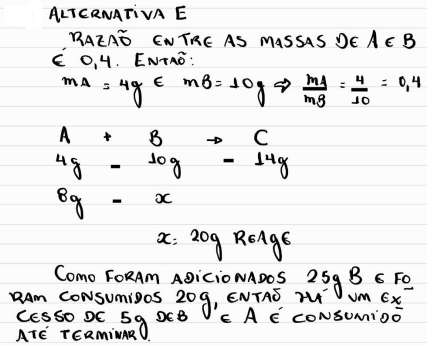 ALTERNATIVA E
RAZAÕ ENTRE AS MASSAS DE A E B
É 0,4. ENTAÕ:
mA = 4g E mB = 10g ⇒ mA/mB = 4/10 = 0,4
A + B → C
4g - 10g - 14g
8g - x
x: 20g REAGE
COMO FORAM ADICIONADOS 25g B E FO
RAM CONSUMIDOS 20g, ENTAÕ HÁ UM EX-
CESSO DE 5g DE B E A É CONSUMIDO
ATÉ TERMINAR.